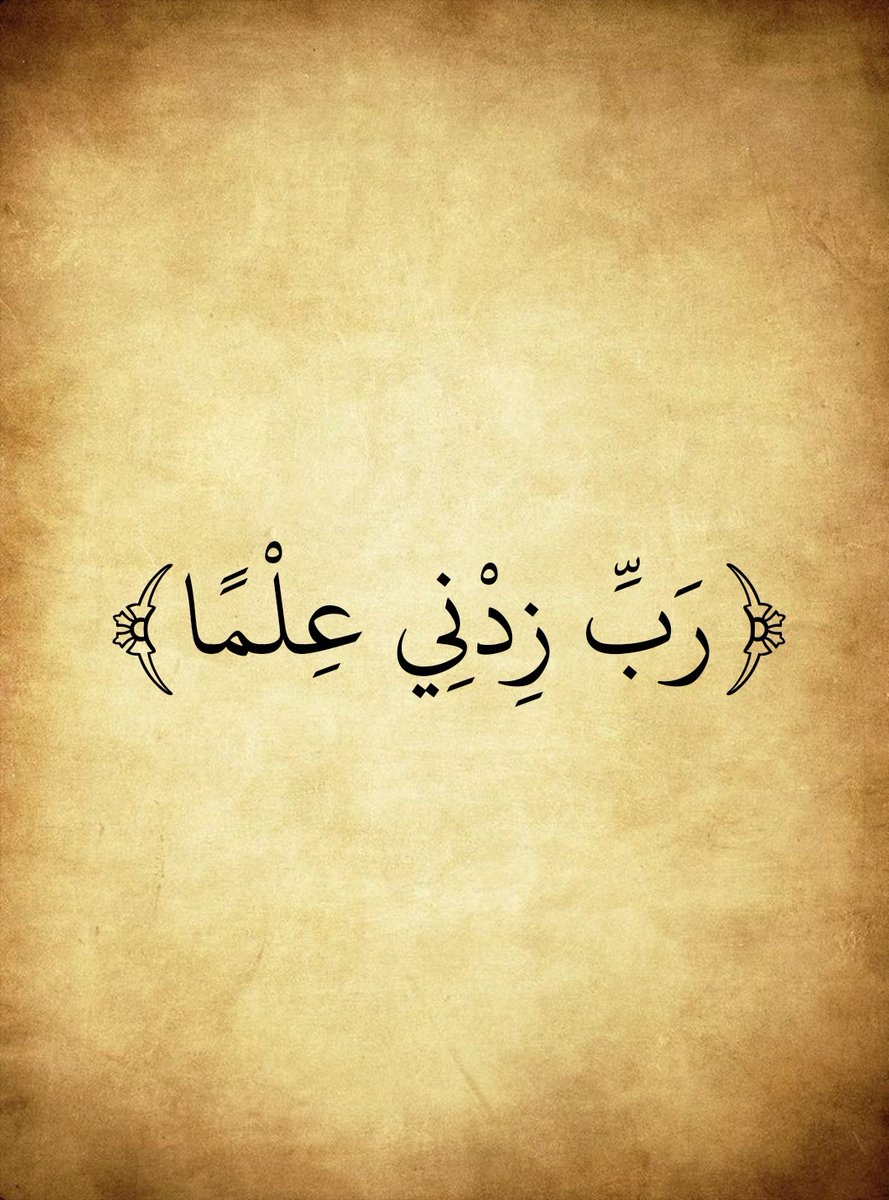 ﴿رَبِّ زِدْنِي عِلْمًا﴾